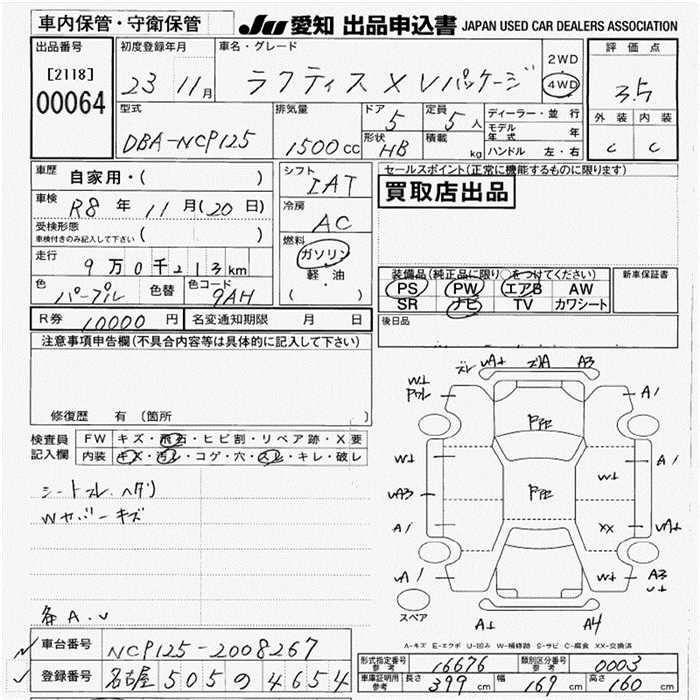 車内保管・守衛保管
JU 愛知 出品申込書 JAPAN USED CAR DEALERS ASSOCIATION
出品番号
[2118]
00064
初度登録年月
23 11月
車名・グレード
ラクティス X Vパッケージ
2WD
4WD
評価点
3.5
外装 内装
C C
型式
DBA-NCP125
排気量
1500cc
ドア
5
定員
5人
形状
HB
積載
kg
ディーラー・並行
モデル年式 年
ハンドル 左・右
車歴
自家用・( )
車検
R8年 11月(20日)
受検形態
車検付きのみ記入して下さい ( )
走行
9万0千213km
色
パープル
色替
色コード
9AH
シフト
IAT
冷房
AC
燃料
ガソリン
軽・油
( )
セールスポイント(正常に機能するものに限ります)
買取店出品
装備品(純正品に限り○をつけてください)
PS PW エアB AW
SR ナビ TV カワシート
新車保証書
後日品
R券 10000円
名変通知期限 月 日
注意事項申告欄(不具合内容等は具体的に記入して下さい)
修復歴 有(箇所 )
検査員記入欄
FW キズ・飛石・ヒビ割・リペア跡・X要
内装 キズ・汚レ・コゲ・穴・スレ・キレ・破レ
シートスレ ヘタリ
Wカバーキズ
各A.U
ズレ UA± ズレA A3
W±
Pワレ
A1
P
P
W±
A1
W±
UA3
A1
XX
UA±
UA1
W±
A3
U±
スペア
A±
A4
A-キズ E-エクボ U-凹み W-補修跡 S-サビ C-腐食 XX-交換済
車台番号
NCP125-2008267
登録番号
名古屋 505 の 4654
形式指定番号 参考
16676
類別区分番号 参考
0003
車庫証明用 参考
長さ 399cm
幅 169cm
高さ 160cm